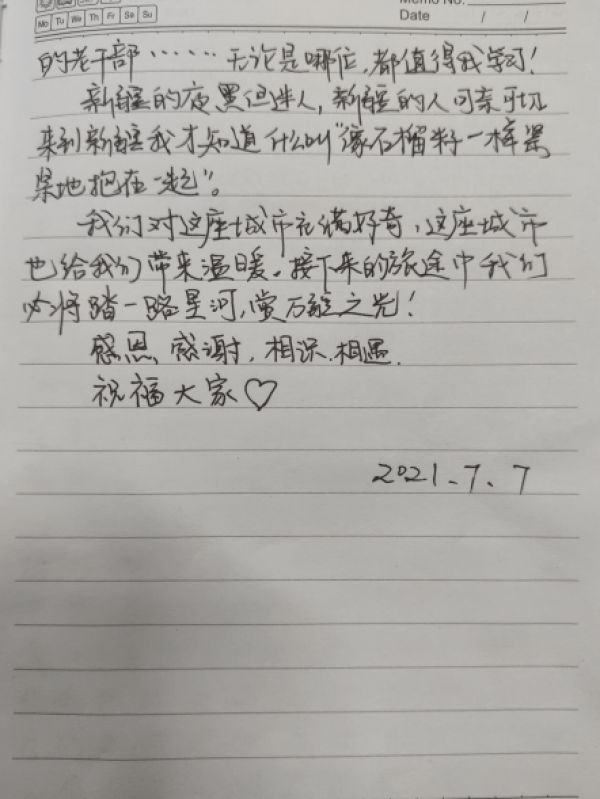 Mo Tu We Th Fr Sa Su
Memo No.
Date / /
的老干部……无论是哪位,都值得我学习!
新疆的夜黑但迷人,新疆的人可亲可切
来到新疆我才知道什么叫“像石榴籽一样紧
紧地抱在一起”。
我们对这座城市充满好奇,这座城市
也给我们带来温暖。接下来的旅途中我们
必将踏一路星河,赏万疆之光!
感恩,感谢,相识,相遇.
祝福大家♡
2021.7.7